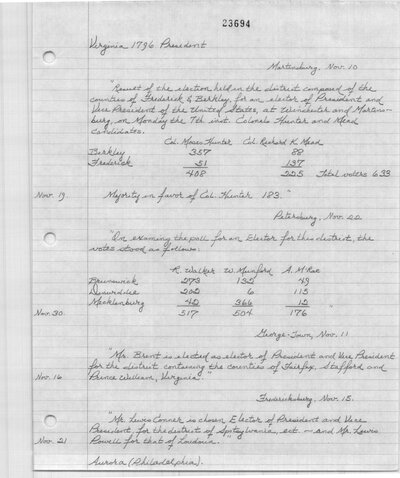 23694
Virginia 1796 President
Martinsburg, Nov. 10
"Result of the election held in the district composed of the
counties of Frederick & Berkley, for an elector of President and
Vice President of the United States, at Winchester and Martins-
burg, on Monday the 7th inst. Colonels Hunter and Mead
candidates.
Col. Moses Hunter Col. Richard K. Mead
Berkley 357 88
Frederick 51 137
408 225 Total voters 633
Nov. 19 Majority in favor of Col. Hunter 183."
Petersburg, Nov. 22
"On examining the poll for an Elector for this district, the
votes stood as follows:
R. Walker W. Munford A. McRae
Brunswick 273 132 49
Dinwiddie 202 6 115
Mecklenburg 42 366 12
Nov. 30 517 504 176 "
George-Town, Nov. 11
"Mr. Brent is elected as elector of President and Vice President
for the district, containing the counties of Fairfax, Stafford and
Nov. 16 Prince William, Virginia."
Fredericksburg, Nov. 15.
"Mr. Lewis Conner is chosen Elector of President and Vice
President, for the district of Spotsylvania, ect. — and Mr. Lewis
Nov. 21 Powell for that of Loudoun."
Aurora (Philadelphia).